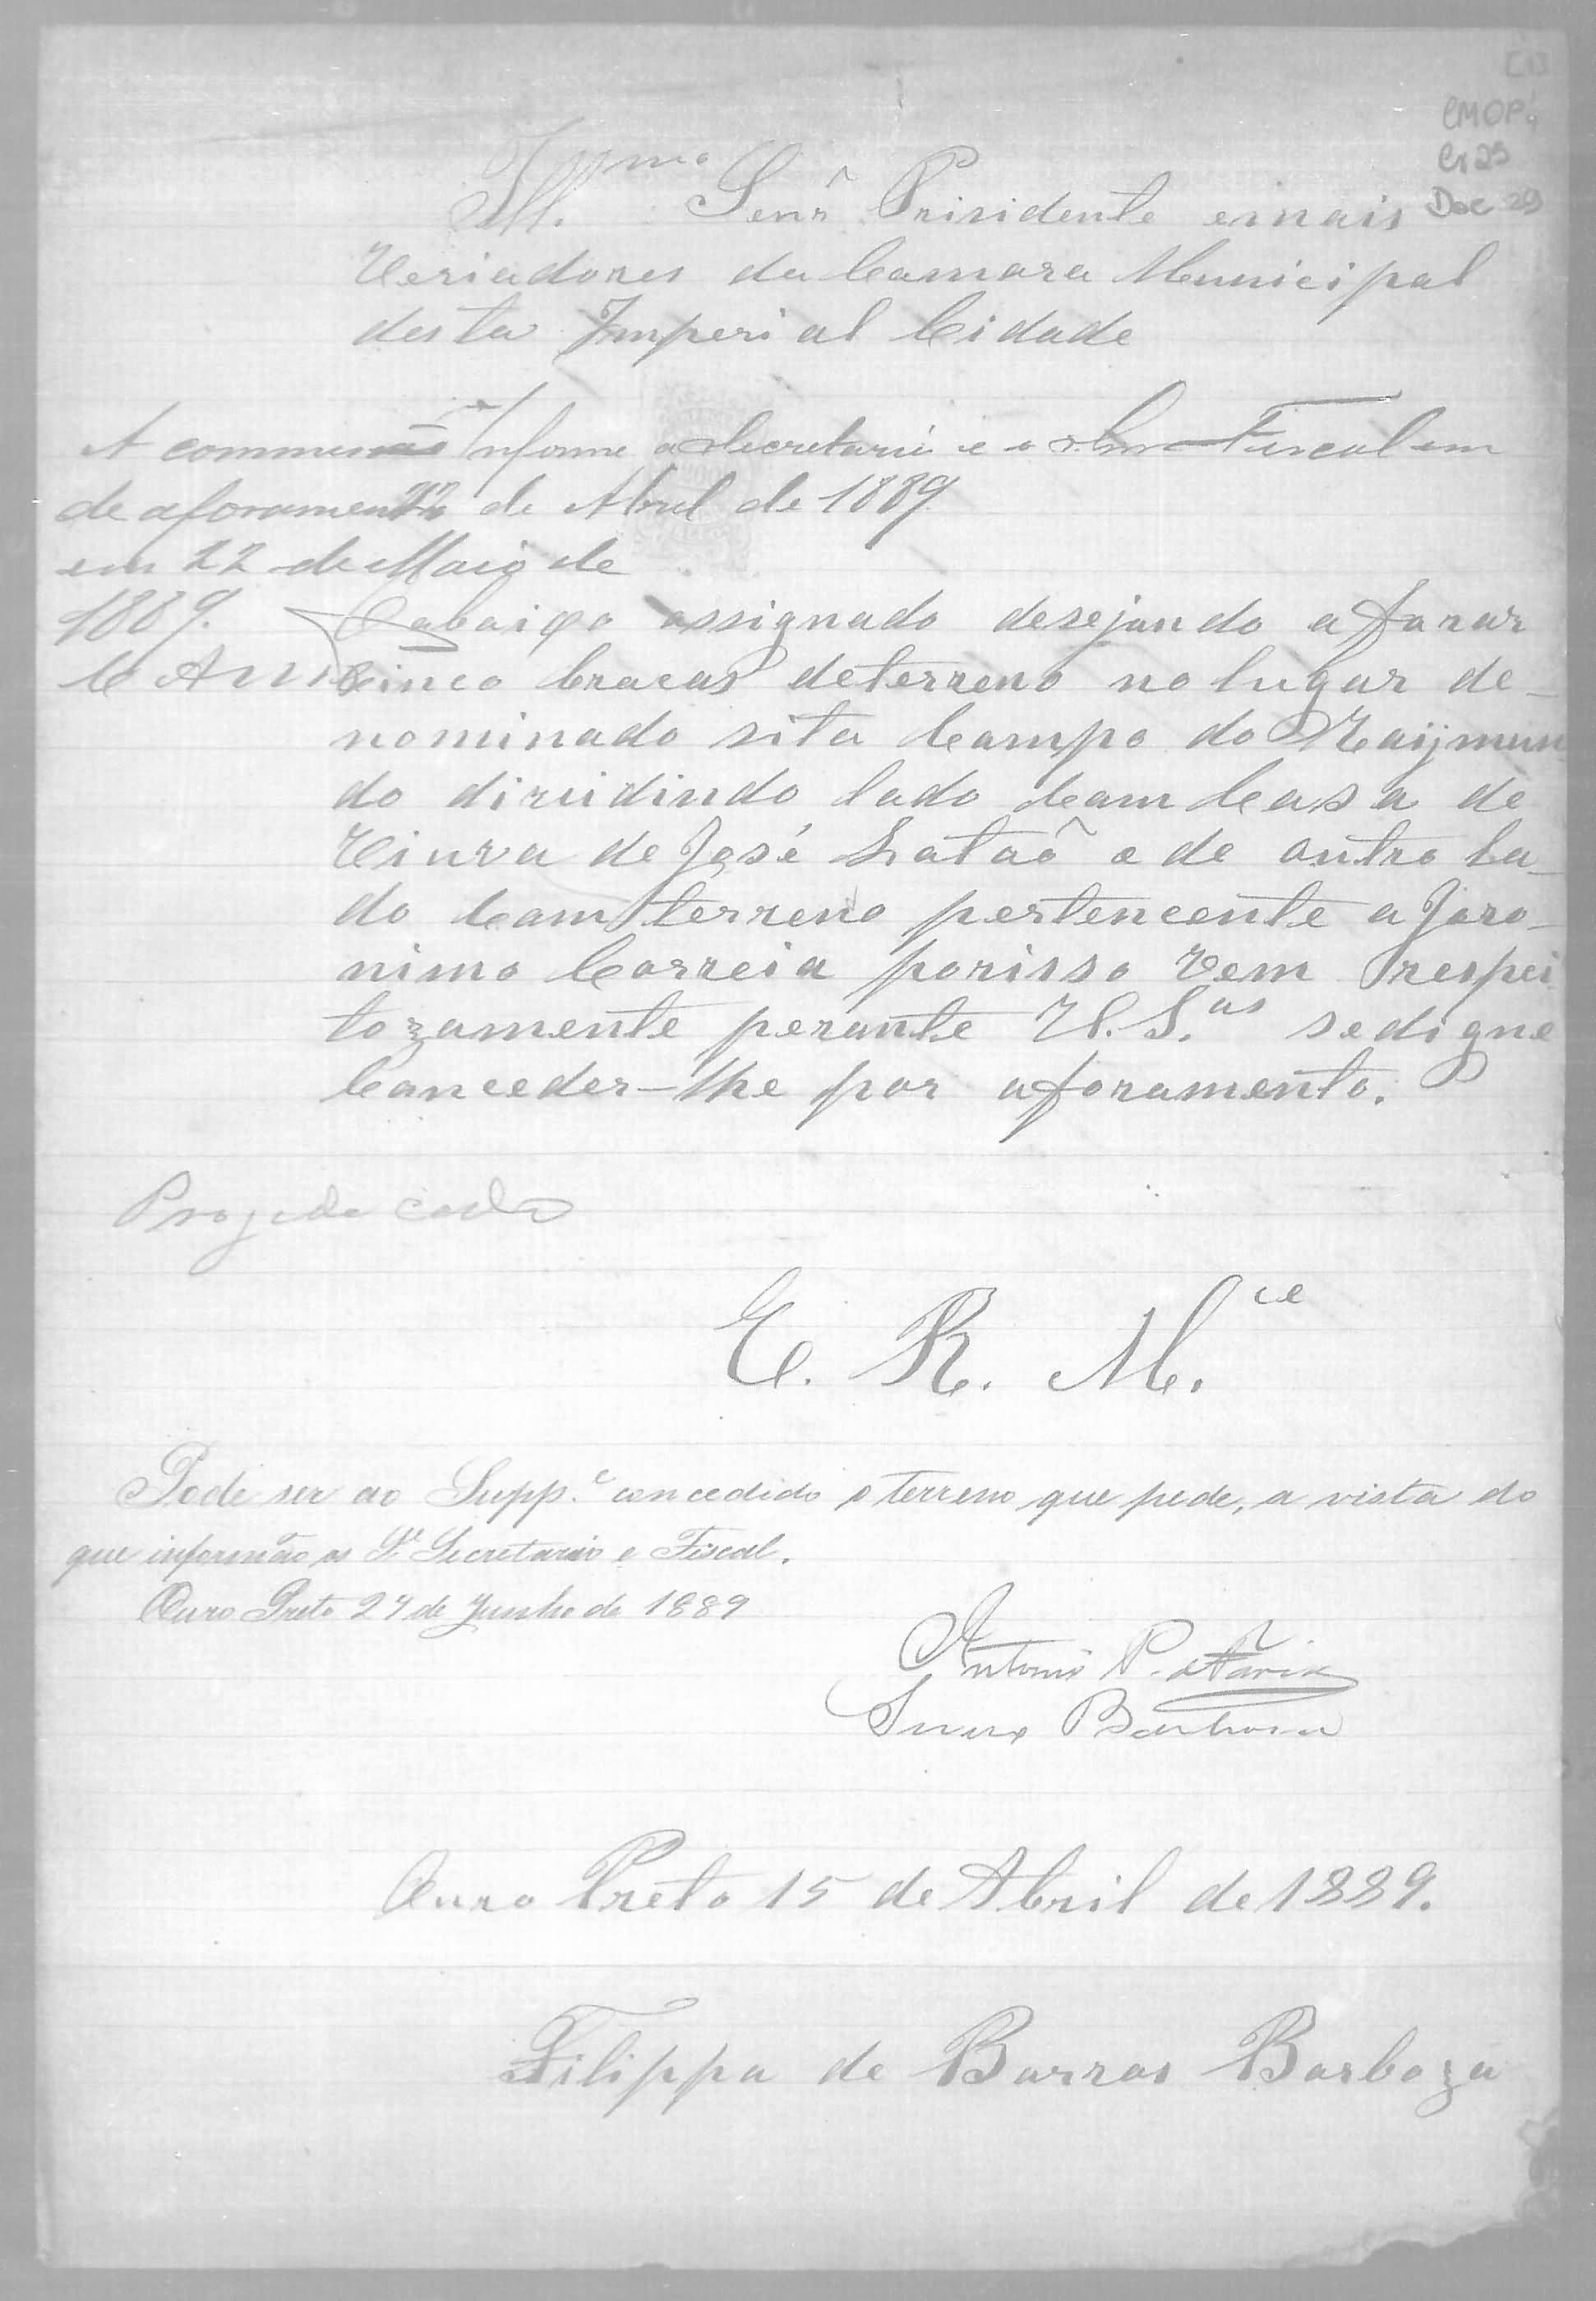 [1]
CMOP
Cx 29
Doc 29
Ill.mo Senr. Prisidente emais
Veriadores da Camara Municipal
desta Imperial Cidade
Informe a Secretaria e o Fiscal em
22 de Abril de 1889.
A commissão
de aforamento
em 22 de Maio de
1889.
O abaixo assignado desejando afarar
Cinco bracas deterreno no lugar de-
nominado sita Campo do Raijmun
do dividindo lado Cam Casa de
Viuva de José Latão e de outro la-
do Cam terreno pertencente a Jero-
nimo Correia porisso vem respei
tozamente perante V. S.as sedigne
Canceder-lhe por aforamento.
E. R. M.ce
Pode ser ao Supp.e concedido o terreno que pede, a vista do
que informão os Srs. Secretario e Fiscal.
Ouro Preto 27 de Junho de 1889
Antonio P.
Barbosa
Ouro Preto 15 de Abril de 1889.
Filippa de Barros Barboza